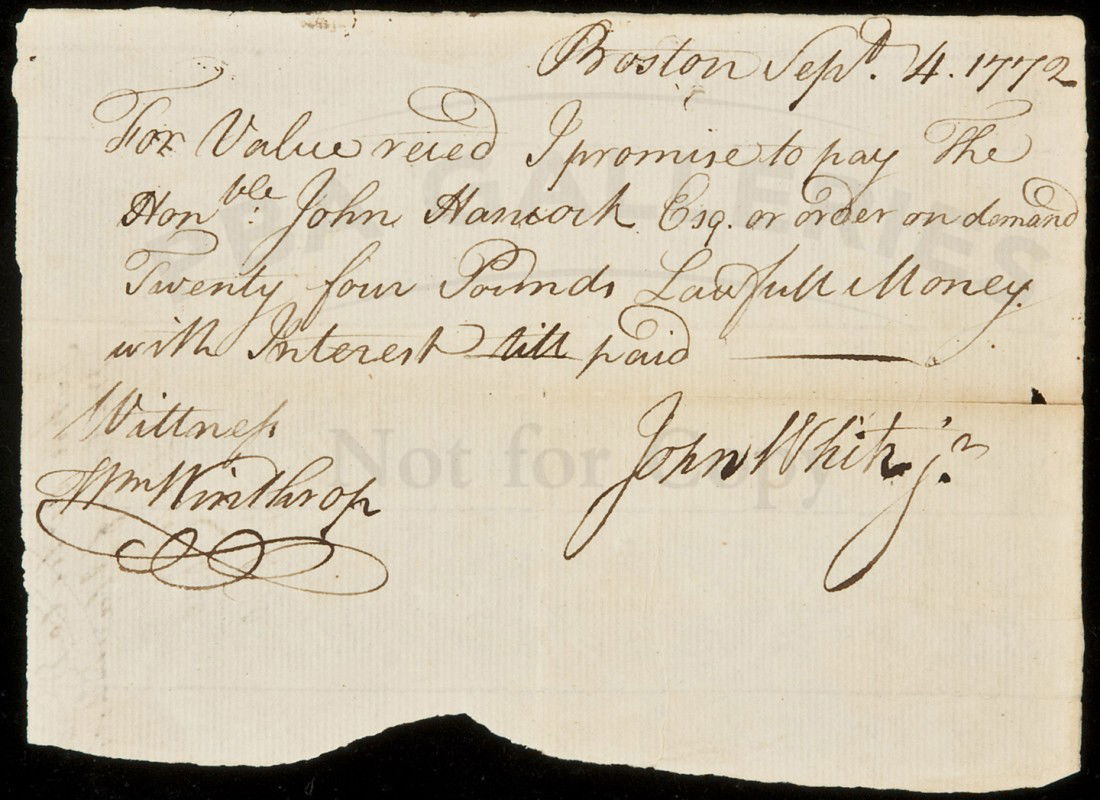 Boston Sept. 4. 1772
For Value reced I promise to pay The
Honble. John Hancock Esq. or order on demand
Twenty four Pounds Lawfull Money
with Interest till paid
Wittness
Wm Winthrop
John White jr.
PBA GALLERIES
Not for Copy